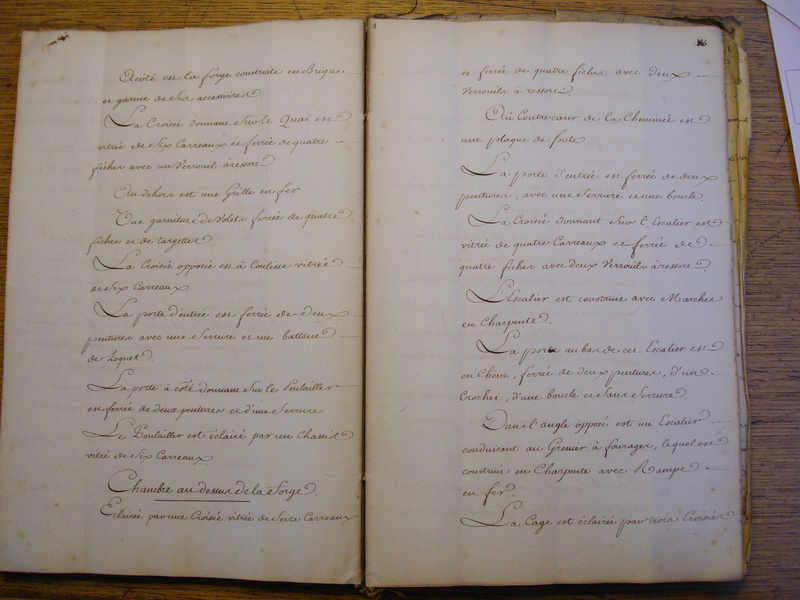 A côté est la forge construite en Brique
et garnie de ses accessoires.
La Croisée donnant sur le Quai est
vitrée de six Carreaux et ferrée de quatre
fiches avec un verrouil à ressort
Au dehors est une Grille en fer
Une garniture de volets ferrée de quatre
fiches et de targettes.
La Croisée opposée est à Coulisse vitrée
de six Carreaux
La porte d'entrée est ferrée de deux
pentures avec une serrure et un battant
de loquet.
La porte à côté donnant sur le Poulailler
est ferrée de deux pentures et d'une serrure
Le Poulailler est éclairé par un Chassis
vitré de six Carreaux
Chambre au dessus de la forge.
Eclairée par une Croisée vitrée de seize Carreaux
et ferrée de quatre fiches avec deux
verrouils à ressort.
Au Contrecœur de la Cheminée est
une plaque de fonte.
La porte d'entrée est ferrée de deux
pentures, avec une serrure et une boucle.
La Croisée donnant sur l'Escalier est
vitrée de quatre Carreaux et ferrée de
quatre fiches avec deux verrouils à ressort.
L'Escalier est construit avec Marches
en Charpente.
La porte au bas de cet Escalier est
en Chêne, ferrée de deux pentures, d'un
Crochet, d'une boucle et sans serrure.
Dans l'angle opposé est un Escalier
conduisant au Grenier à fourages, lequel est
construit en Charpente avec Rampe
en fer.
La Cage est éclairée par trois Croisées